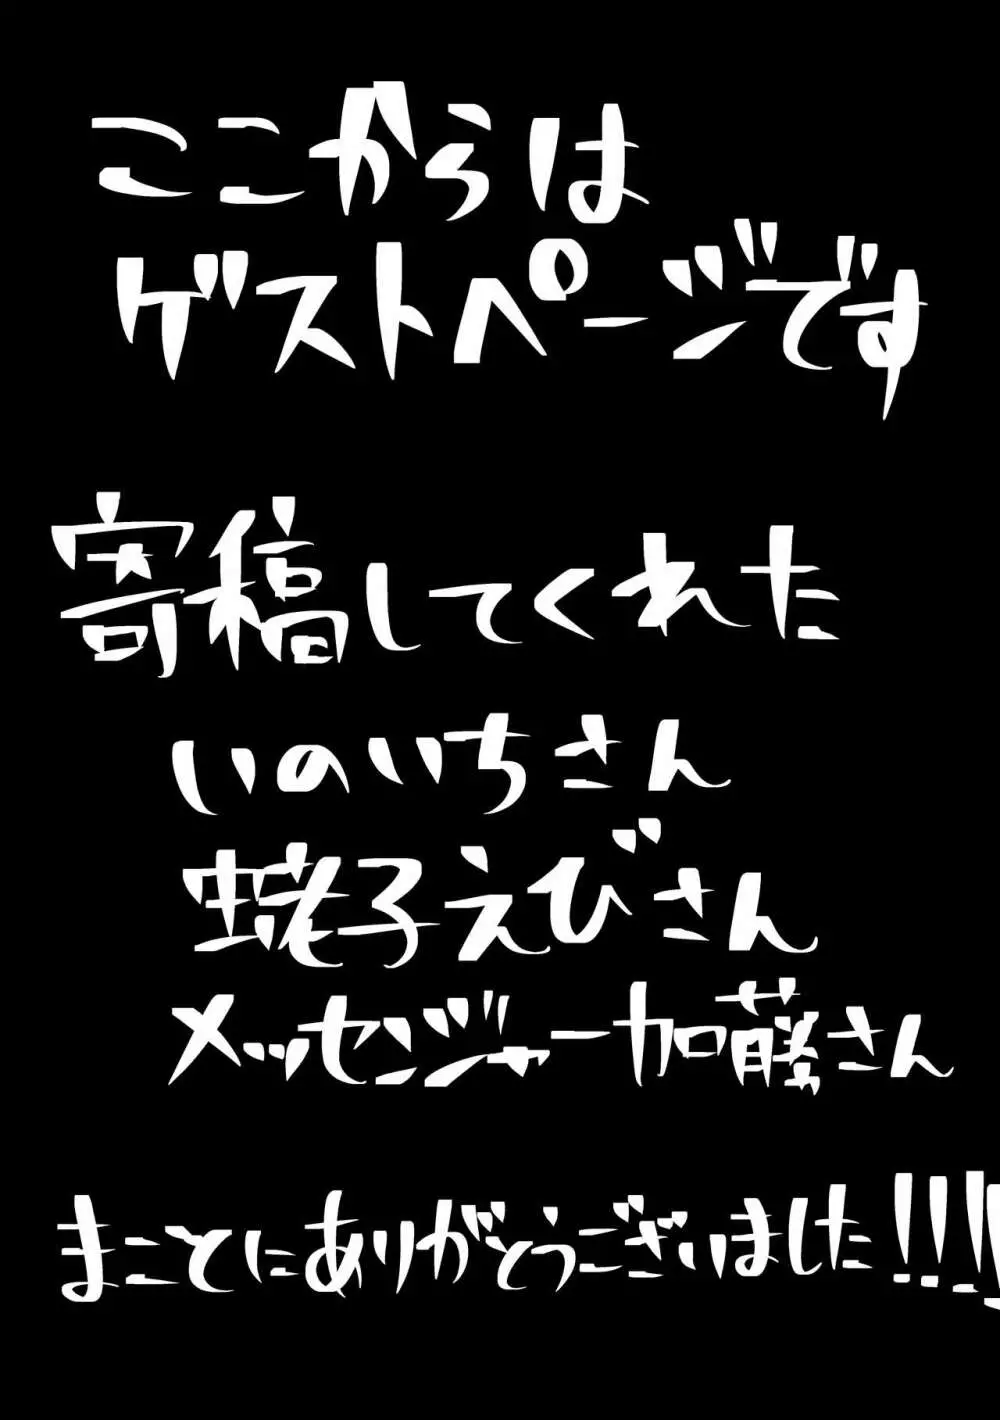 ここからは
ゲストページです
寄稿してくれた
いのいちさん
蛯子えびさん
メッセンジャー加藤さん
まことにありがとうございました!!!!